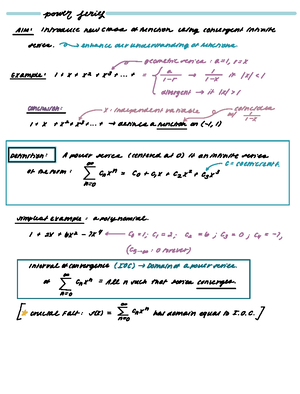 power series
Aim: Introduce new class of function using convergent infinite
series. → enhance our understanding of functions
geometric series: a=1, r=x
Example: 1 + x + x² + x³ + ... = { a/(1-r) → 1/(1-x) if |x| < 1
divergent → if |x| > 1
Conclusion: x: independent variable coincides w/ 1/(1-x)
1 + x + x² + x³ + ... → defines a function on (-1, 1)
Definition: A power series (centered at 0) is an infinite series
C = coefficient.
of the form: ∞ Σ n=0 Cₙxⁿ = C₀ + C₁x + C₂x² + C₃x³
simplest example: a polynomial
1 + 2x + 6x² - 7x⁴ ← C₀=1; C₁=2; C₂=6; C₃=0; C₄=-7,
(C₅₋∞: 0 forever)
Interval of convergence (IOC) → Domain of a power series
of ∞ Σ n=0 Cₙxⁿ = all x such that series converges.
[★ crucial fact: f(x) = ∞ Σ n=0 Cₙxⁿ has domain equal to I.O.C.]